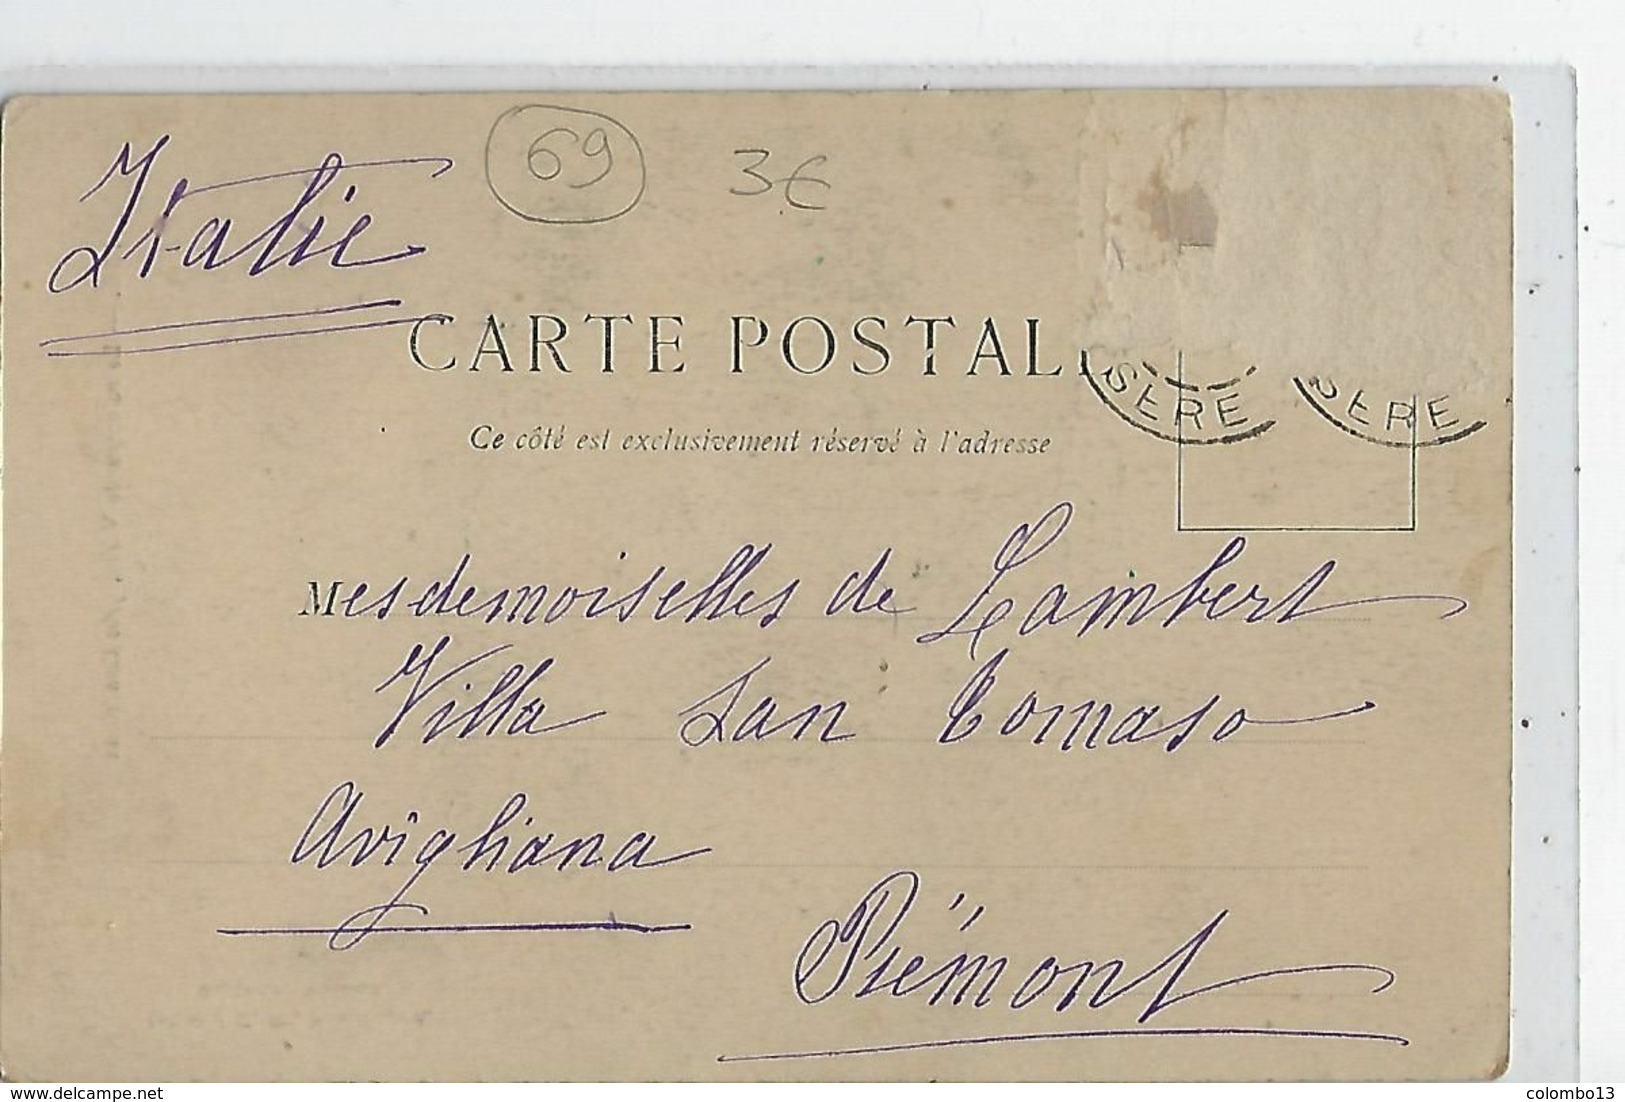 Italie
69
3€
CARTE POSTAL
Ce côté est exclusivement réservé à l'adresse
SERE SERE
Mesdemoiselles de Lambert
Villa San Tomaso
Avigliana
Piémont
colombo13